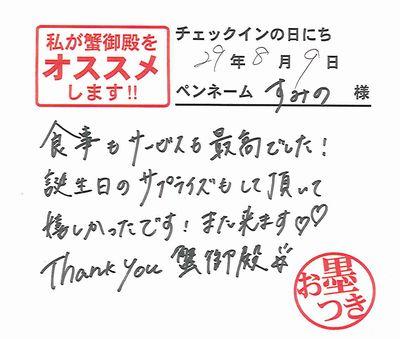 私が蟹御殿を
オススメ
します!!
チェックインの日にち
29年8月9日
ペンネーム すみの 様
食事もサービスも最高でした!
誕生日のサプライズもして頂いて
嬉しかったです!また来ます♡♡
Thank you 蟹御殿
お墨つき